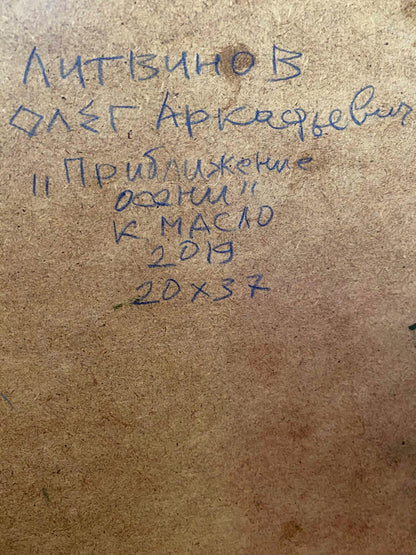 ЛИТВИНОВ
ОЛЕГ Аркадьевич
"Приближение
осени"
К МАСЛО
2019
20х37